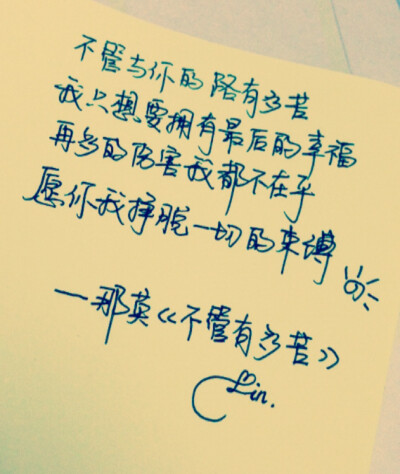 不管与你的路有多苦
我只想要拥有最后的幸福
再多的伤害我都不在乎
愿你我挣脱一切的束缚
—那英《不管有多苦》
Lin.